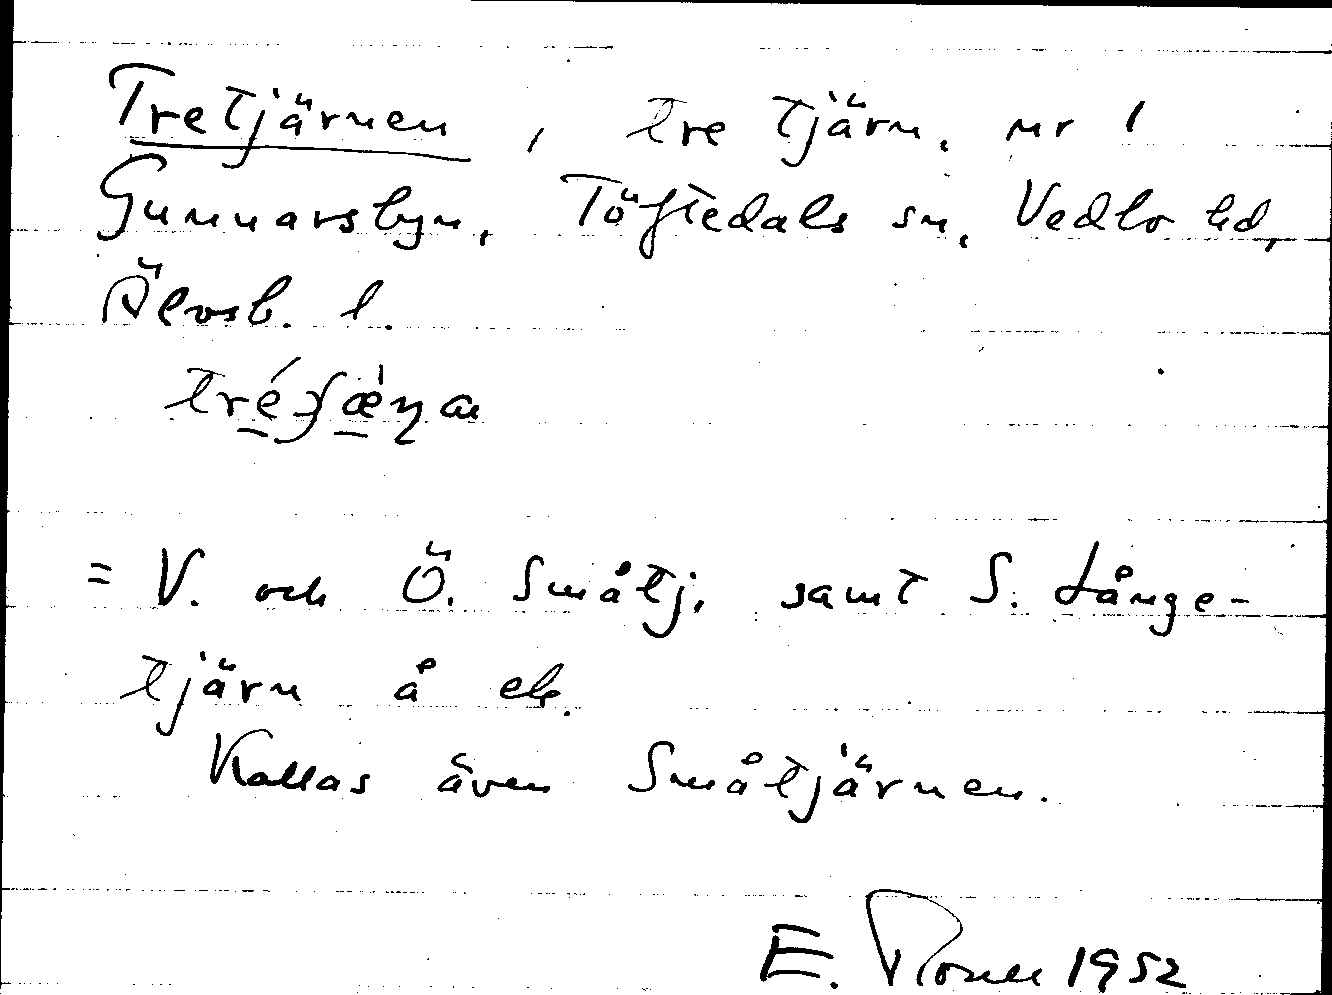 Tretjärnen, tre tjärn, nr 1
Gunnarsbyn, Töftedals sn, Vedbo hd,
Älvsb. l.
= V. och Ö. Småtj. samt S. Långe-
tjärn å ek.
Kallas även Småtjärnen.
E. 1952